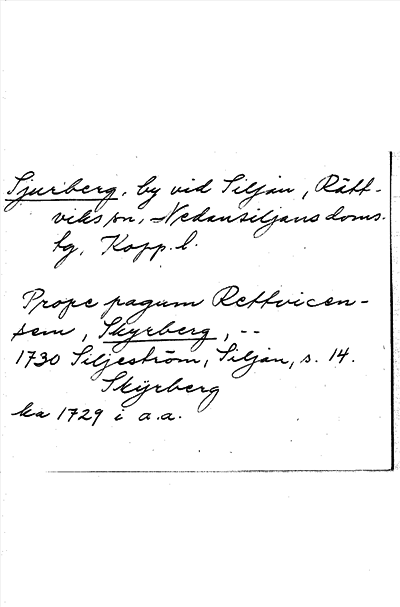 Sjurberg, by vid Siljan, Rätt-
viks sn, Nedansiljans doms.
bg, Kopp. l.
Prope pagum Rettvicen-
sem, Skyrberg, --
1730 Siljeström, Siljan, s. 14.
Skÿrberg
ka 1729 i a.a.